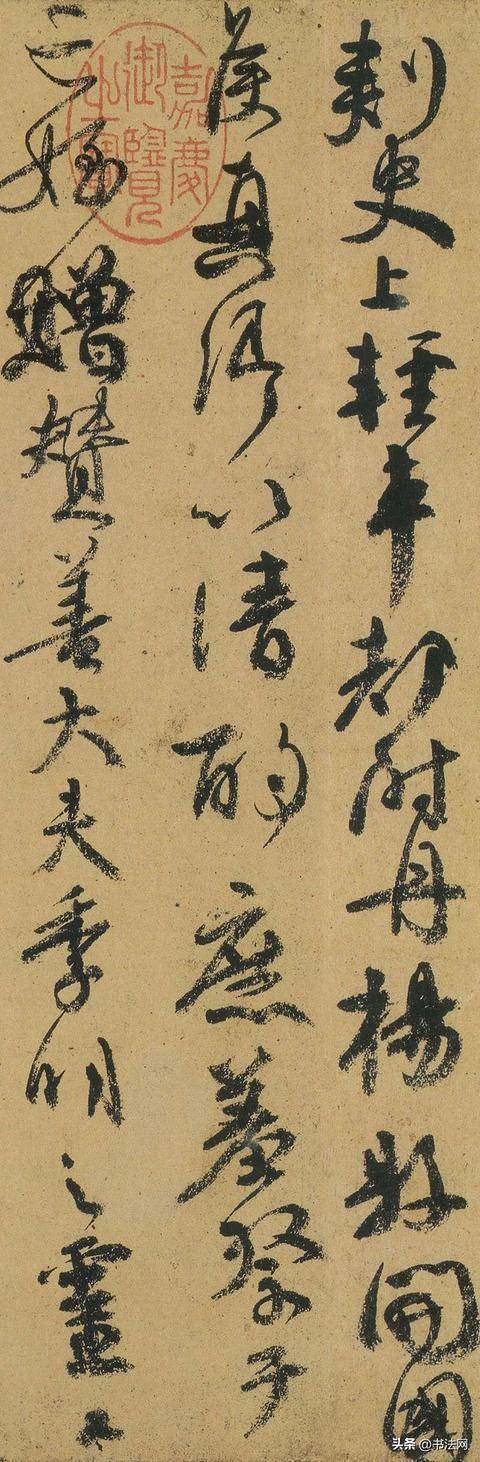 刺史上輕車都尉丹楊縣開國
侯真卿以清酌庶羞祭于
亡姪贈贊善大夫季明之靈曰
嘉慶御覽之寶
头条 @书法网